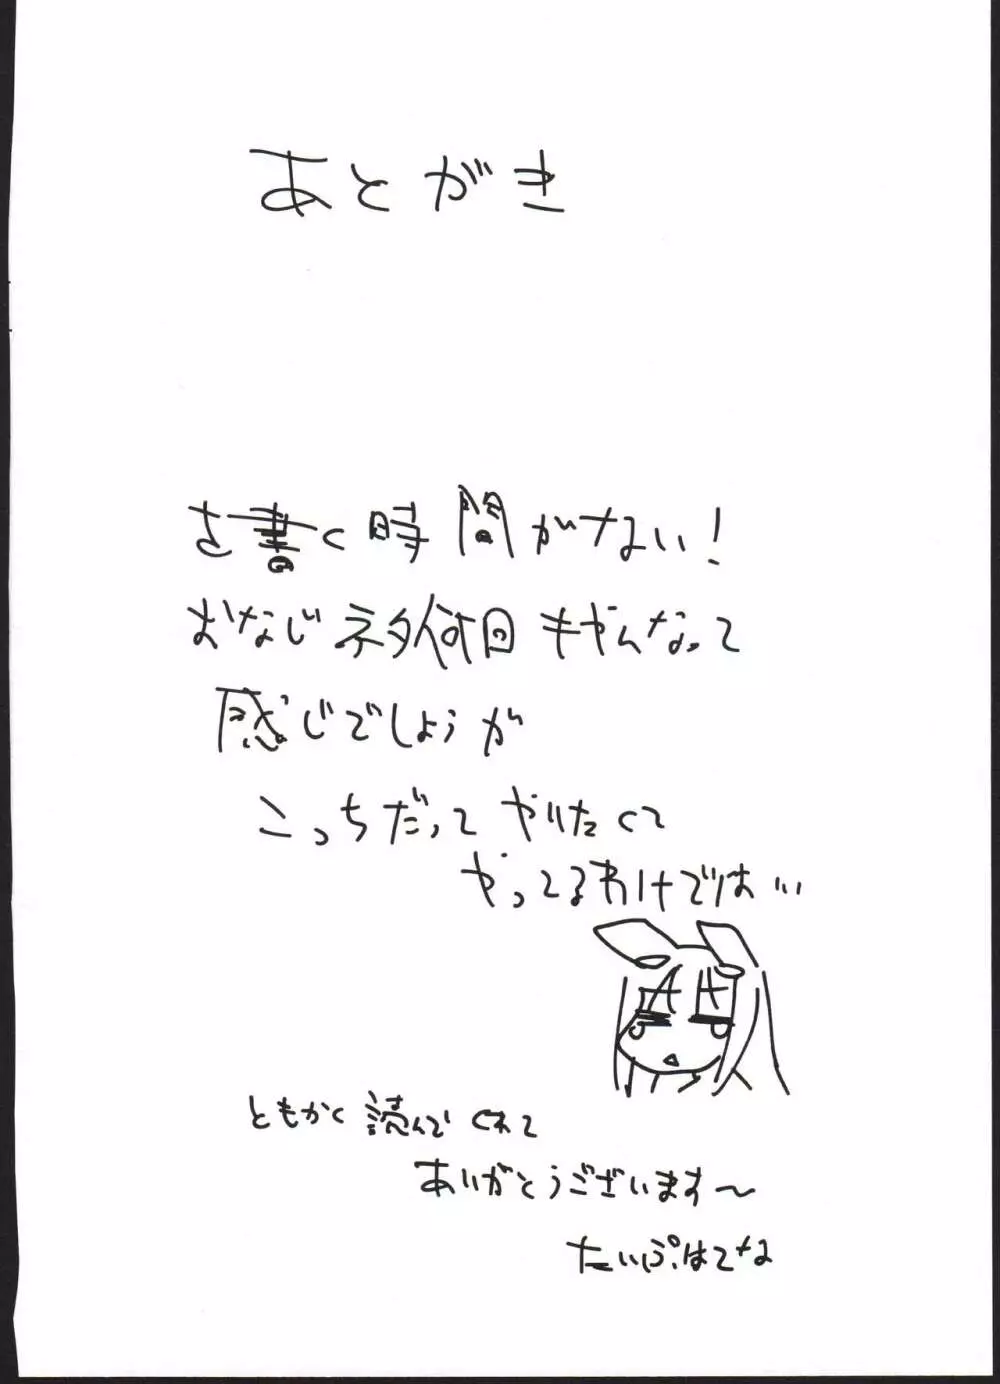 あとがき
を書く時間がない!
おなじネタ何回もやんなって
感じでしょうが
こっちだってやりたくて
やってるわけでは…
ともかく読んでくれて
ありがとうございます〜
たいぷはてな